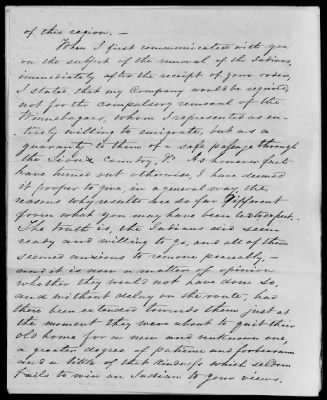 of this region. —
When I first communicated with you
on the subject of the removal of the Indians,
immediately after the receipt of your orders,
I stated that my Company would be required,
not for the compulsory removal of the
Winnebagoes, whom I represented as en-
tirely willing to emigrate, but as a
guaranty to them of a safe passage through
the Sioux Country. As however facts
have turned out otherwise, I have deemed
it proper to give, in a general way, the
reasons why results are so far different
from what you may have been led to expect. —
The truth is, the Indians did seem
ready and willing to go, and all of them
seemed anxious to remove peaceably, —
and it is now a matter of opinion
whether they would not have done so,
and without delay on the route, had
there been extended towards them just at
the moment they were about to quit their
old home for a new and unknown one,
a greater degree of patience and forbearance
and a little of that kindness which seldom
fails to win an Indian to your views.